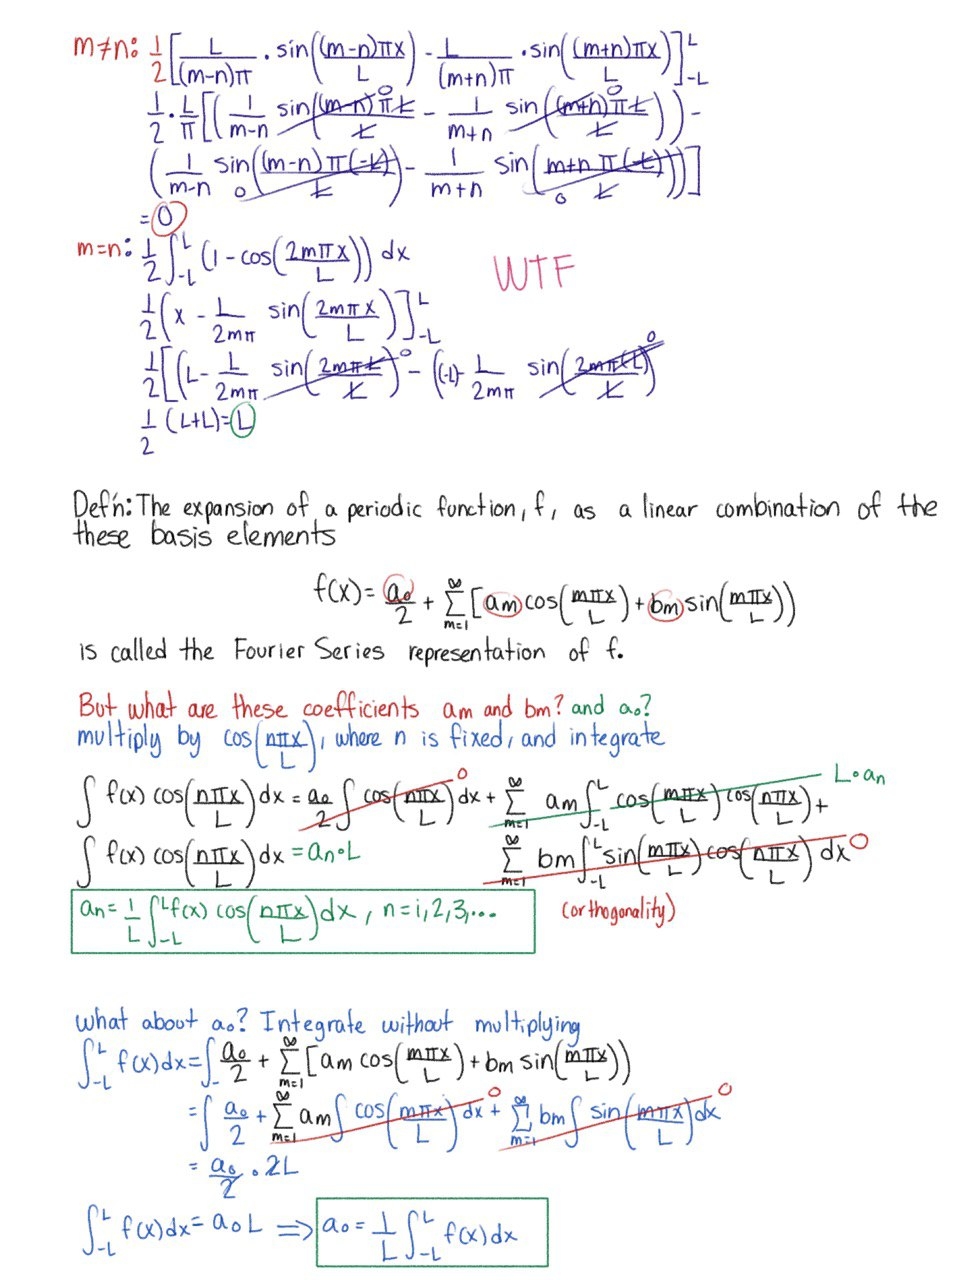 m≠n: 1/2 [L/((m-n)π) · sin((m-n)πx/L) - L/((m+n)π) · sin((m+n)πx/L)]_-L^L
1/2 · L/π [(1/(m-n) sin((m-n)πL/L)^0 - 1/(m+n) sin((m+n)πL/L)^0) -
(1/(m-n) sin((m-n)π(-L)/L) 0 - 1/(m+n) sin(m+n π(-L)/L) 0)]
= 0
m=n: 1/2 ∫_-L^L (1 - cos(2mπx/L)) dx
WTF
1/2 (x - L/2mπ sin(2mπx/L)]_-L^L
1/2 [(L - L/2mπ sin(2mπL/L)^0 - ((-L) - L/2mπ sin(2mπ(-L)/L)^0)
1/2 (L+L) = L
Def'n: The expansion of a periodic function, f, as a linear combination of the
these basis elements
f(x) = a₀/2 + Σ_{m=1}^∞ [am cos(mπx/L) + bm sin(mπx/L))
is called the Fourier Series representation of f.
But what are these coefficients am and bm? and a₀?
multiply by cos(nπx/L), where n is fixed, and integrate
∫ f(x) cos(nπx/L) dx = a₀/2 ∫ cos(nπx/L) dx 0 + Σ_{m=1}^∞ am ∫_-L^L cos(mπx/L) cos(nπx/L) + L·an
∫ f(x) cos(nπx/L) dx = an·L Σ_{m=1}^∞ bm ∫_-L^L sin(mπx/L) cos(nπx/L) dx 0
an = 1/L ∫_-L^L f(x) cos(nπx/L) dx, n = 1, 2, 3, ...
(orthogonality)
what about a₀? Integrate without multiplying
∫_-L^L f(x) dx = ∫_- a₀/2 + Σ_{m=1}^∞ [am cos(mπx/L) + bm sin(mπx/L))
= ∫ a₀/2 + Σ_{m=1}^∞ am ∫ cos(mπx/L) dx 0 + Σ_{m=1}^∞ bm ∫ sin(mπx/L) dx 0
= a₀/2 · 2L
∫_-L^L f(x) dx = a₀L ⟹ a₀ = 1/L ∫_-L^L f(x) dx